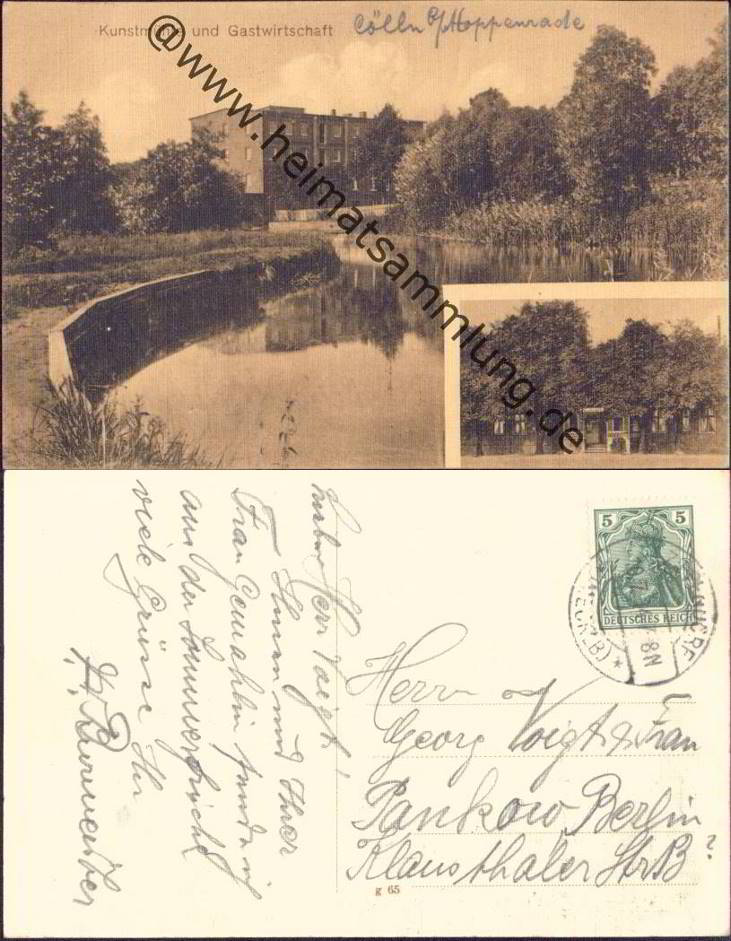 Kunstmühle und Gastwirtschaft Cölln b/Hoppenrade
@www.heimatsammlung.de
5 5
DEUTSCHES REICH
8N
Herr Voigt!
Ihnen und Ihrer
Frau Gemahlin sende ich
aus der Sommerfrische
viele Grüsse Ihr
Herrn
Georg Voigt & Frau
Pankow Berlin
Klausthaler Str B?
g 65